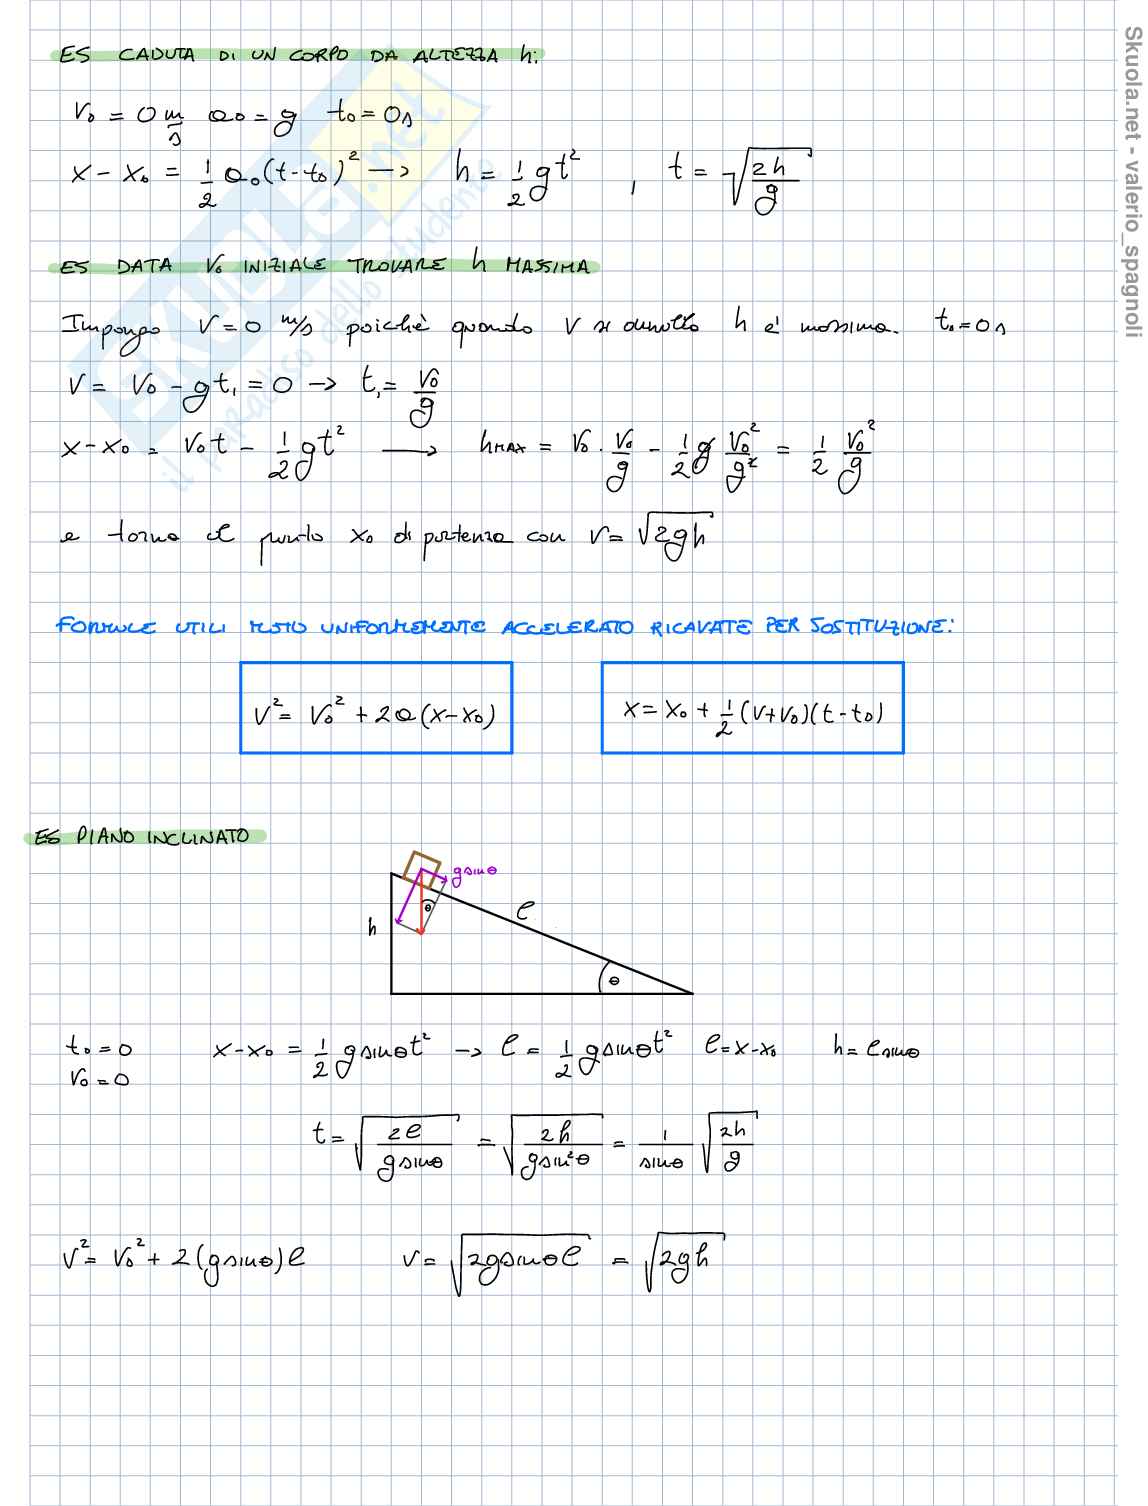 ES CADUTA DI UN CORPO DA ALTEZZA h:
V₀ = 0 m/s a₀ = g t₀ = 0s
x - x₀ = 1/2 a₀(t-t₀)² → h = 1/2 gt² , t = √(2h/g)
ES DATA V₀ INIZIALE TROVARE h MASSIMA
Impongo V = 0 m/s poichè quando V si annulla h è massima. t₀ = 0s
V = V₀ - gt₁ = 0 → t₁ = V₀/g
x - x₀ = V₀t - 1/2 gt² → hMAX = V₀ · V₀/g - 1/2 g V₀²/g² = 1/2 V₀²/g
e torna al punto x₀ di partenza con V = √(2gh)
FORMULE UTILI MOTO UNIFORMEMENTE ACCELERATO RICAVATE PER SOSTITUZIONE:
V² = V₀² + 2a(x-x₀)
x = x₀ + 1/2 (V+V₀)(t-t₀)
ES PIANO INCLINATO
g sinθ
θ
l
h
θ
t₀ = 0 x-x₀ = 1/2 g sinθt² → l = 1/2 g sinθt² l = x-x₀ h = l sinθ
V₀ = 0
t = √(2l/(g sinθ)) = √(2h/(g sin²θ)) = 1/sinθ √(2h/g)
V² = V₀² + 2(g sinθ)l V = √(2g sinθ l) = √(2gh)
Skuola.net - valerio_spagnoli
SKUOLA.net
il paradiso dello studente